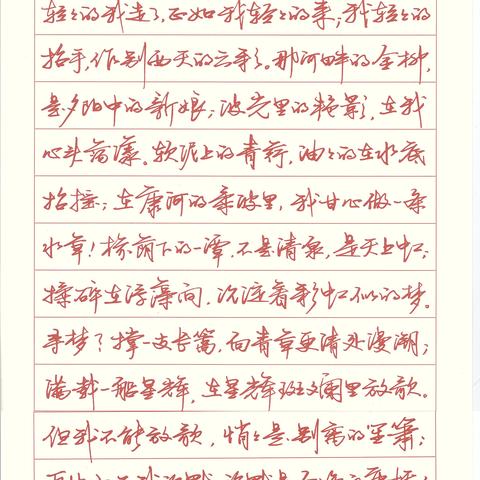 轻轻的我走了,正如我轻轻的来;我轻轻的
招手,作别西天的云彩。那河畔的金柳,
是夕阳中的新娘;波光里的艳影,在我
心头荡漾。软泥上的青荇,油油的在水底
招摇;在康河的柔波里,我甘心做一条
水草!榆荫下的一潭,不是清泉,是天上虹;
揉碎在浮藻间,沉淀着彩虹似的梦。
寻梦?撑一支长篙,向青草更青处漫溯;
满载一船星辉,在星辉斑斓里放歌。
但我不能放歌,悄悄是别离的笙箫;